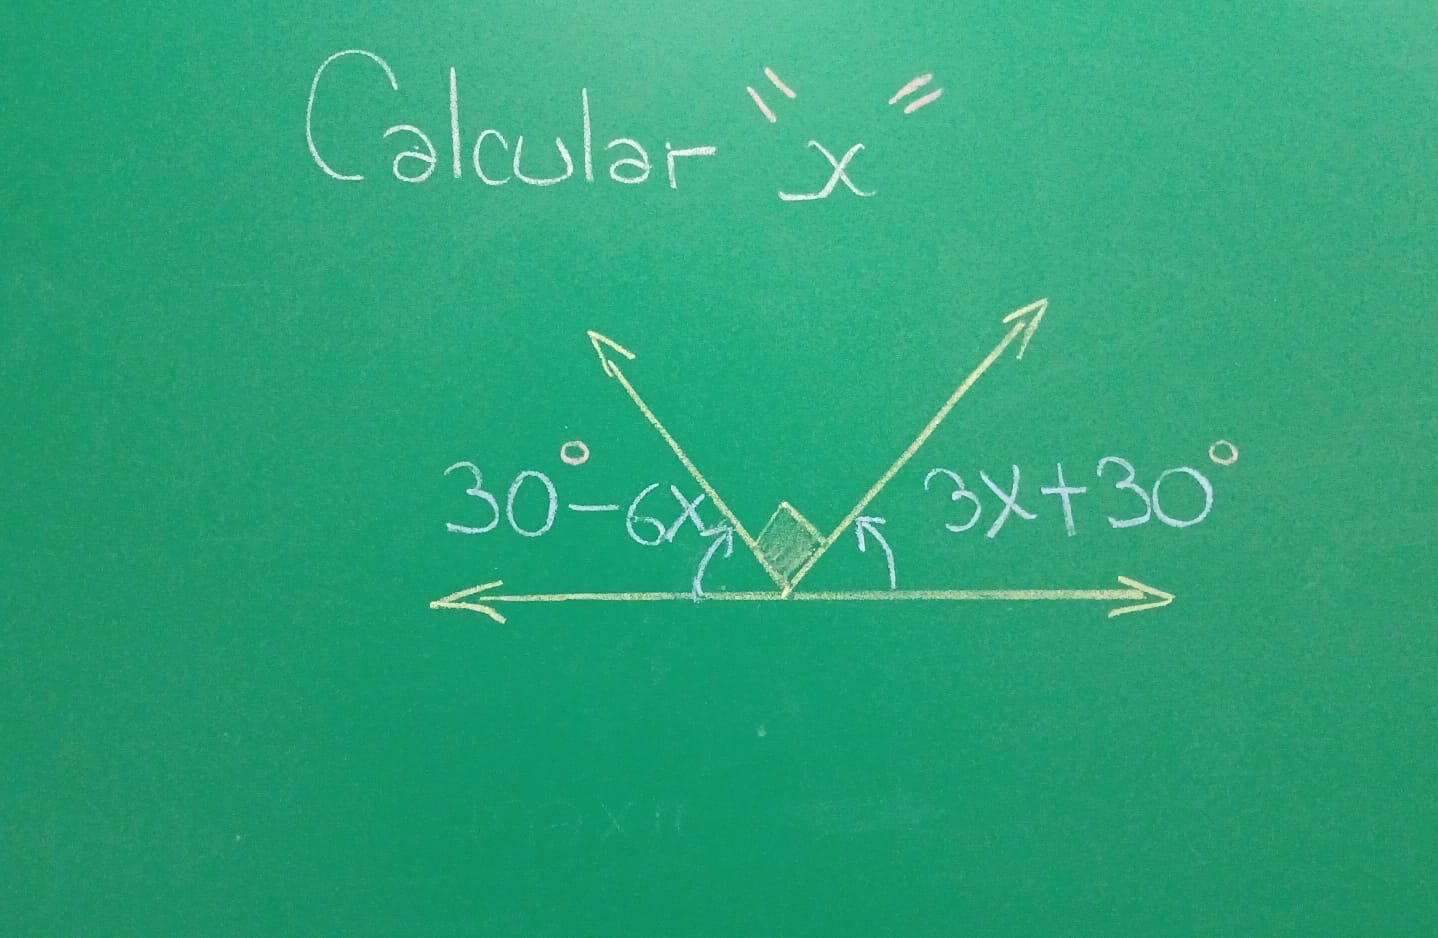 Calcular "x"
30°-6x 3x+30°